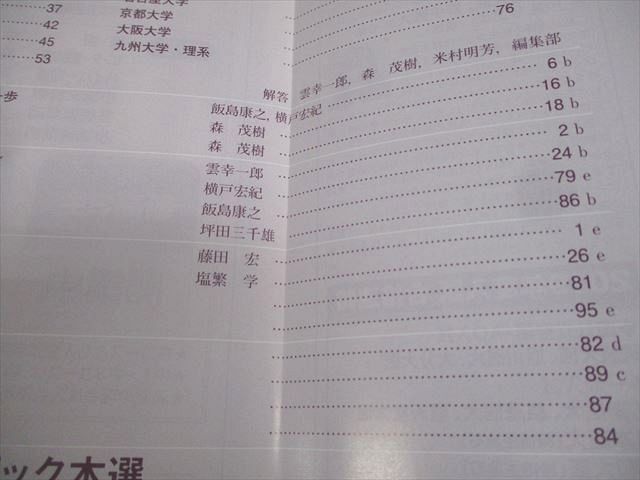 名古屋大学
37 京都大学 76
42 大阪大学
45 九州大学・理系
53
解答 雲幸一郎, 森 茂樹, 米村明芳, 編集部
歩
飯島康之, 横戸宏紀 6 b
森 茂樹 16 b
森 茂樹 18 b
雲幸一郎 2 b
横戸宏紀 24 b
飯島康之 79 e
坪田三千雄 86 b
藤田 宏 1 e
塩繁 学 26 e
81
95 e
82 d
89 c
87
84
ック本選